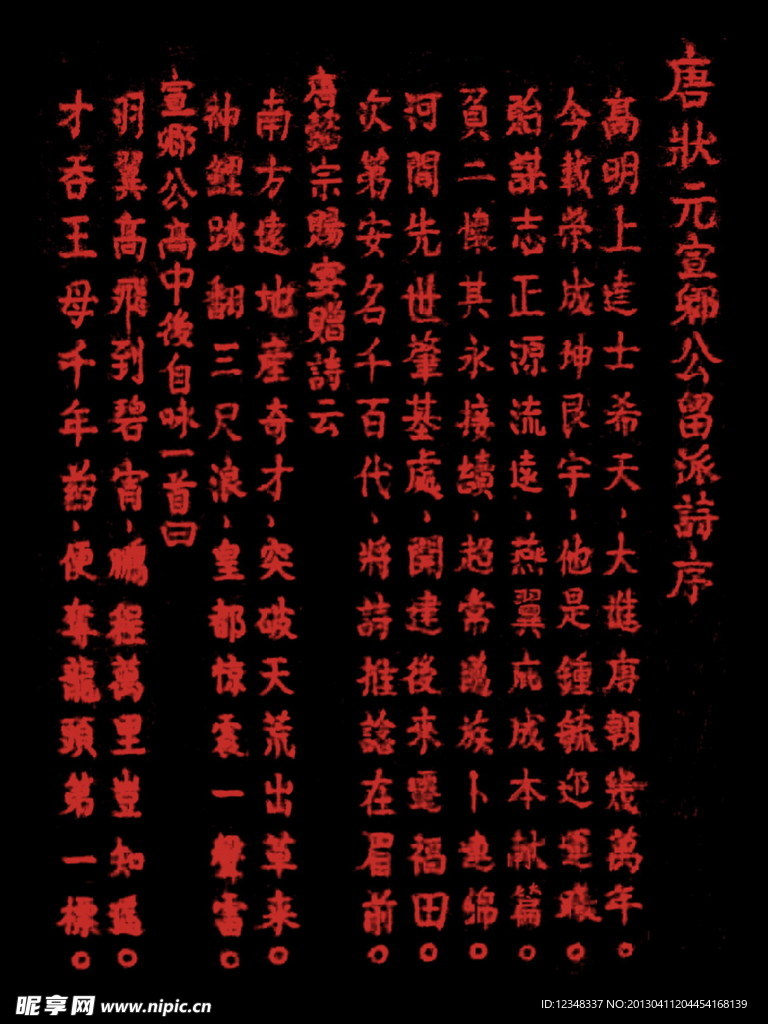 唐狀元宣鄉公留派詩序
高明上達士希天、大進唐朝幾萬年。
今載榮成坤艮宇、他是鍾毓迎運
貽謀志正源流遠、燕翼庇成本猷篇。
負二懷其永接續、超常 族卜連綿。
河間先世肇基處、開建後來 福田。
次第安名千百代、將詩推諗在眉前。
唐懿宗賜宴贈詩云
南方遠地產奇才、突破天荒出草来。
神鯉跳翻三尺浪、皇都惊震一聲雷。
宣鄉公高中後自咏一首曰
羽翼高飛到碧霄、鵬程萬里豈知遙。
才吞王母千年药、便奪龍頭第一標。
昵享网 www.nipic.cn
ID:12348337 NO:20130411204454168139